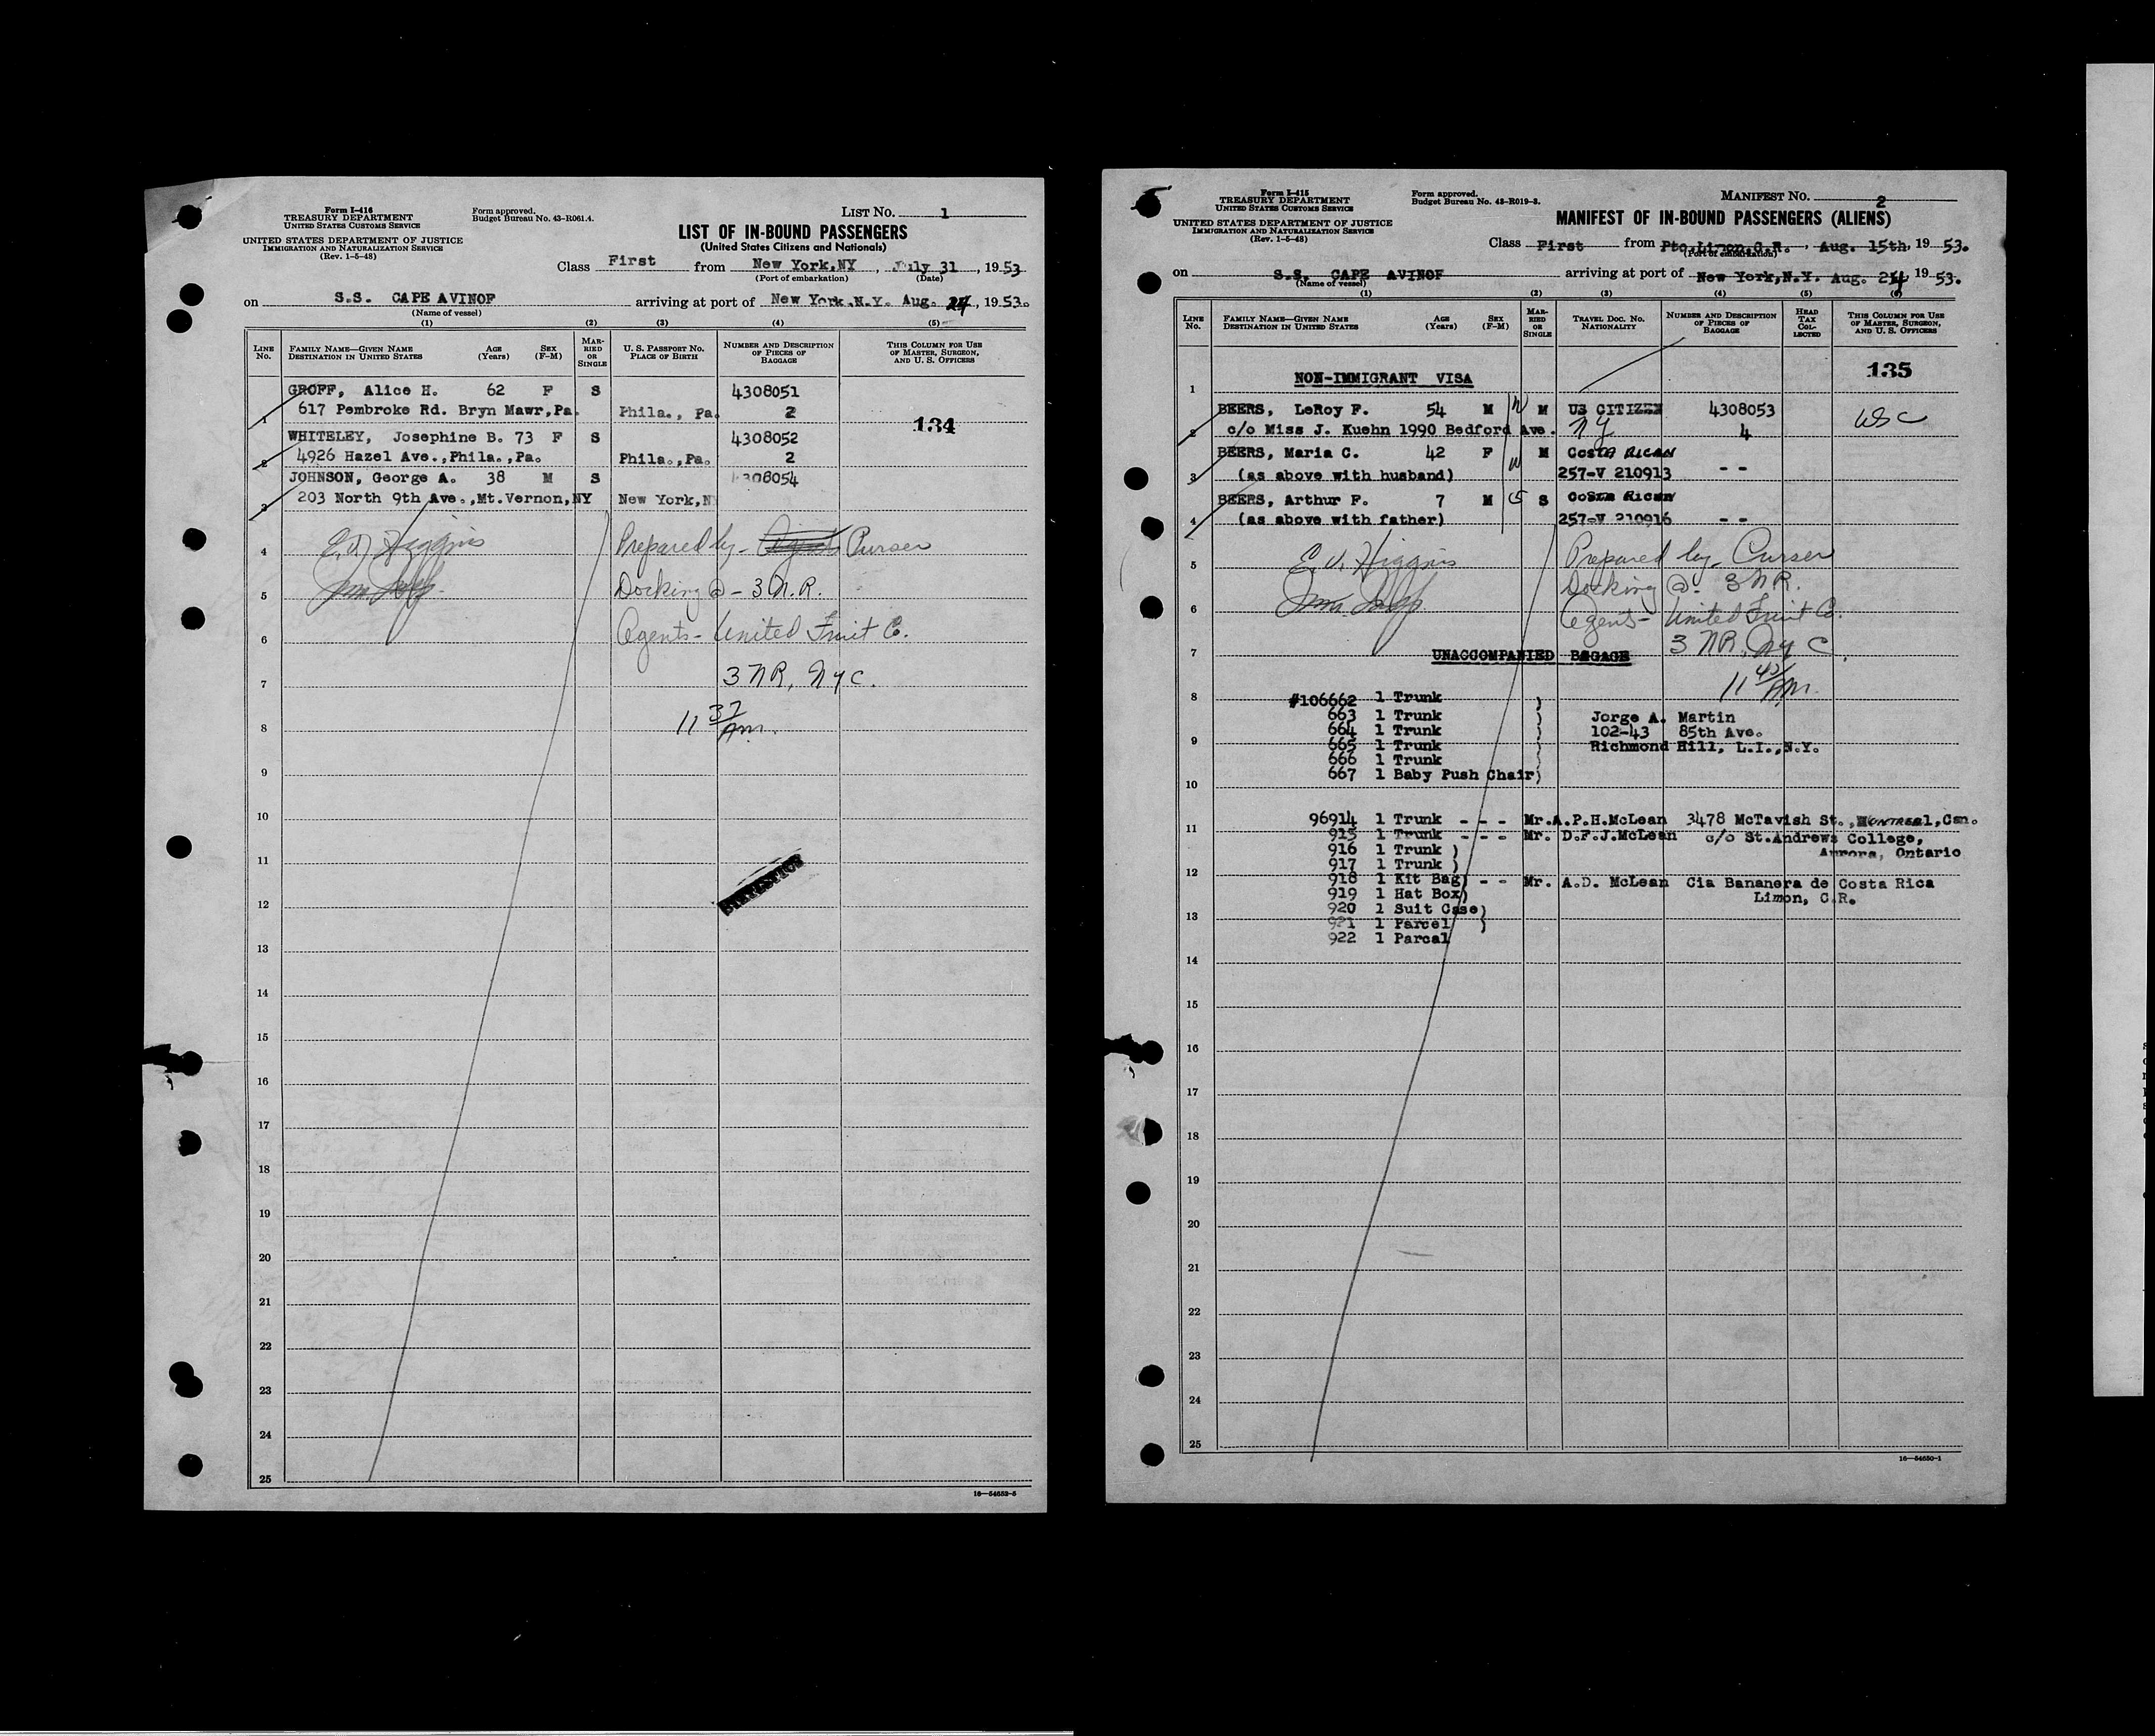 Form I-416
TREASURY DEPARTMENT
UNITED STATES CUSTOMS SERVICE
UNITED STATES DEPARTMENT OF JUSTICE
IMMIGRATION AND NATURALIZATION SERVICE
(Rev. 1-5-48)
Form approved.
Budget Bureau No. 43-R061.4.
LIST NO. 1
LIST OF IN-BOUND PASSENGERS
(United States Citizens and Nationals)
Class First from New York,NY, July 31, 1953
(Port of embarkation) (Date)
on S.S. CAPE AVINOF arriving at port of New York,N.Y. Aug. 24, 1953.
(Name of vessel)
(1) (2) (3) (4) (5)
LINE No. FAMILY NAME—GIVEN NAME DESTINATION IN UNITED STATES AGE (Years) SEX (F-M) MARRIED OR SINGLE U. S. PASSPORT NO. PLACE OF BIRTH NUMBER AND DESCRIPTION OF PIECES OF BAGGAGE THIS COLUMN FOR USE OF MASTER, SURGEON, AND U. S. OFFICERS
GROFF, Alice H. 62 F S 4308051
1 617 Pembroke Rd. Bryn Mawr,Pa. Phila., Pa. 2 134
WHITELEY, Josephine B. 73 F S 4308052
2 4926 Hazel Ave.,Phila.,Pa. Phila.,Pa. 2
JOHNSON, George A. 38 M S 4308054
3 203 North 9th Ave.,Mt.Vernon,NY New York,N
4 E.V. Higgins Prepared by - Purser
5 Docking @ - 3 N.R.
6 Agents - United Fruit Co.
7 3 NR, NYC.
8 11 37 AM.
9
10
11
STATISTICS
12
13
14
15
16
17
18
19
20
21
22
23
24
25
16—54652-5
Form I-415
TREASURY DEPARTMENT
UNITED STATES CUSTOMS SERVICE
UNITED STATES DEPARTMENT OF JUSTICE
IMMIGRATION AND NATURALIZATION SERVICE
(Rev. 1-5-48)
Form approved.
Budget Bureau No. 43-R019-3.
MANIFEST NO. 2
MANIFEST OF IN-BOUND PASSENGERS (ALIENS)
Class First from Pto.Limon,C.R., Aug. 15th, 1953.
(Port of embarkation)
on S.S. CAPE AVINOF arriving at port of New York,N.Y. Aug. 24 1953.
(Name of vessel)
(1) (2) (3) (4) (5) (6)
LINE No. FAMILY NAME—GIVEN NAME DESTINATION IN UNITED STATES AGE (Years) SEX (F-M) MARRIED OR SINGLE TRAVEL DOC. NO. NATIONALITY NUMBER AND DESCRIPTION OF PIECES OF BAGGAGE HEAD TAX COLLECTED THIS COLUMN FOR USE OF MASTER, SURGEON, AND U. S. OFFICERS
1 NON-IMMIGRANT VISA 135
BEERS, LeRoy F. 54 M M US CITIZEN 4308053 USC
2 c/o Miss J. Kuehn 1990 Bedford Ave. NY 4
BEERS, Maria C. 42 F M Costa RICAN
3 (as above with husband) 257-V 210913 - -
BEERS, Arthur F. 7 M S Costa Rican
4 (as above with father) 257-V 210916 - -
5 E.V. Higgins Prepared by - Purser
6 Docking @ - 3 N.R.
Agents - United Fruit Co.
7 3 NR, NYC
UNACCOMPANIED BAGAGE
11 45 AM.
8 #106662 1 Trunk )
663 1 Trunk ) Jorge A. Martin
664 1 Trunk ) 102-43 85th Ave.
9 665 1 Trunk ) Richmond Hill, L.I.,N.Y.
666 1 Trunk )
667 1 Baby Push Chair)
10
96914 1 Trunk - - - Mr.A.P.H.McLean 3478 McTavish St.,MONTREAL,Can.
11 915 1 Trunk - - - Mr. D.F.J.McLean c/o St.Andrews College,
916 1 Trunk ) Aurora, Ontario
917 1 Trunk )
12 918 1 Kit Bag) - - Mr. A.D. McLean Cia Bananera de Costa Rica
919 1 Hat Box) Limon, C.R.
920 1 Suit Case)
13 921 1 Parcel )
922 1 Parcal
14
15
16
17
18
19
20
21
22
23
24
25
16—54650-1